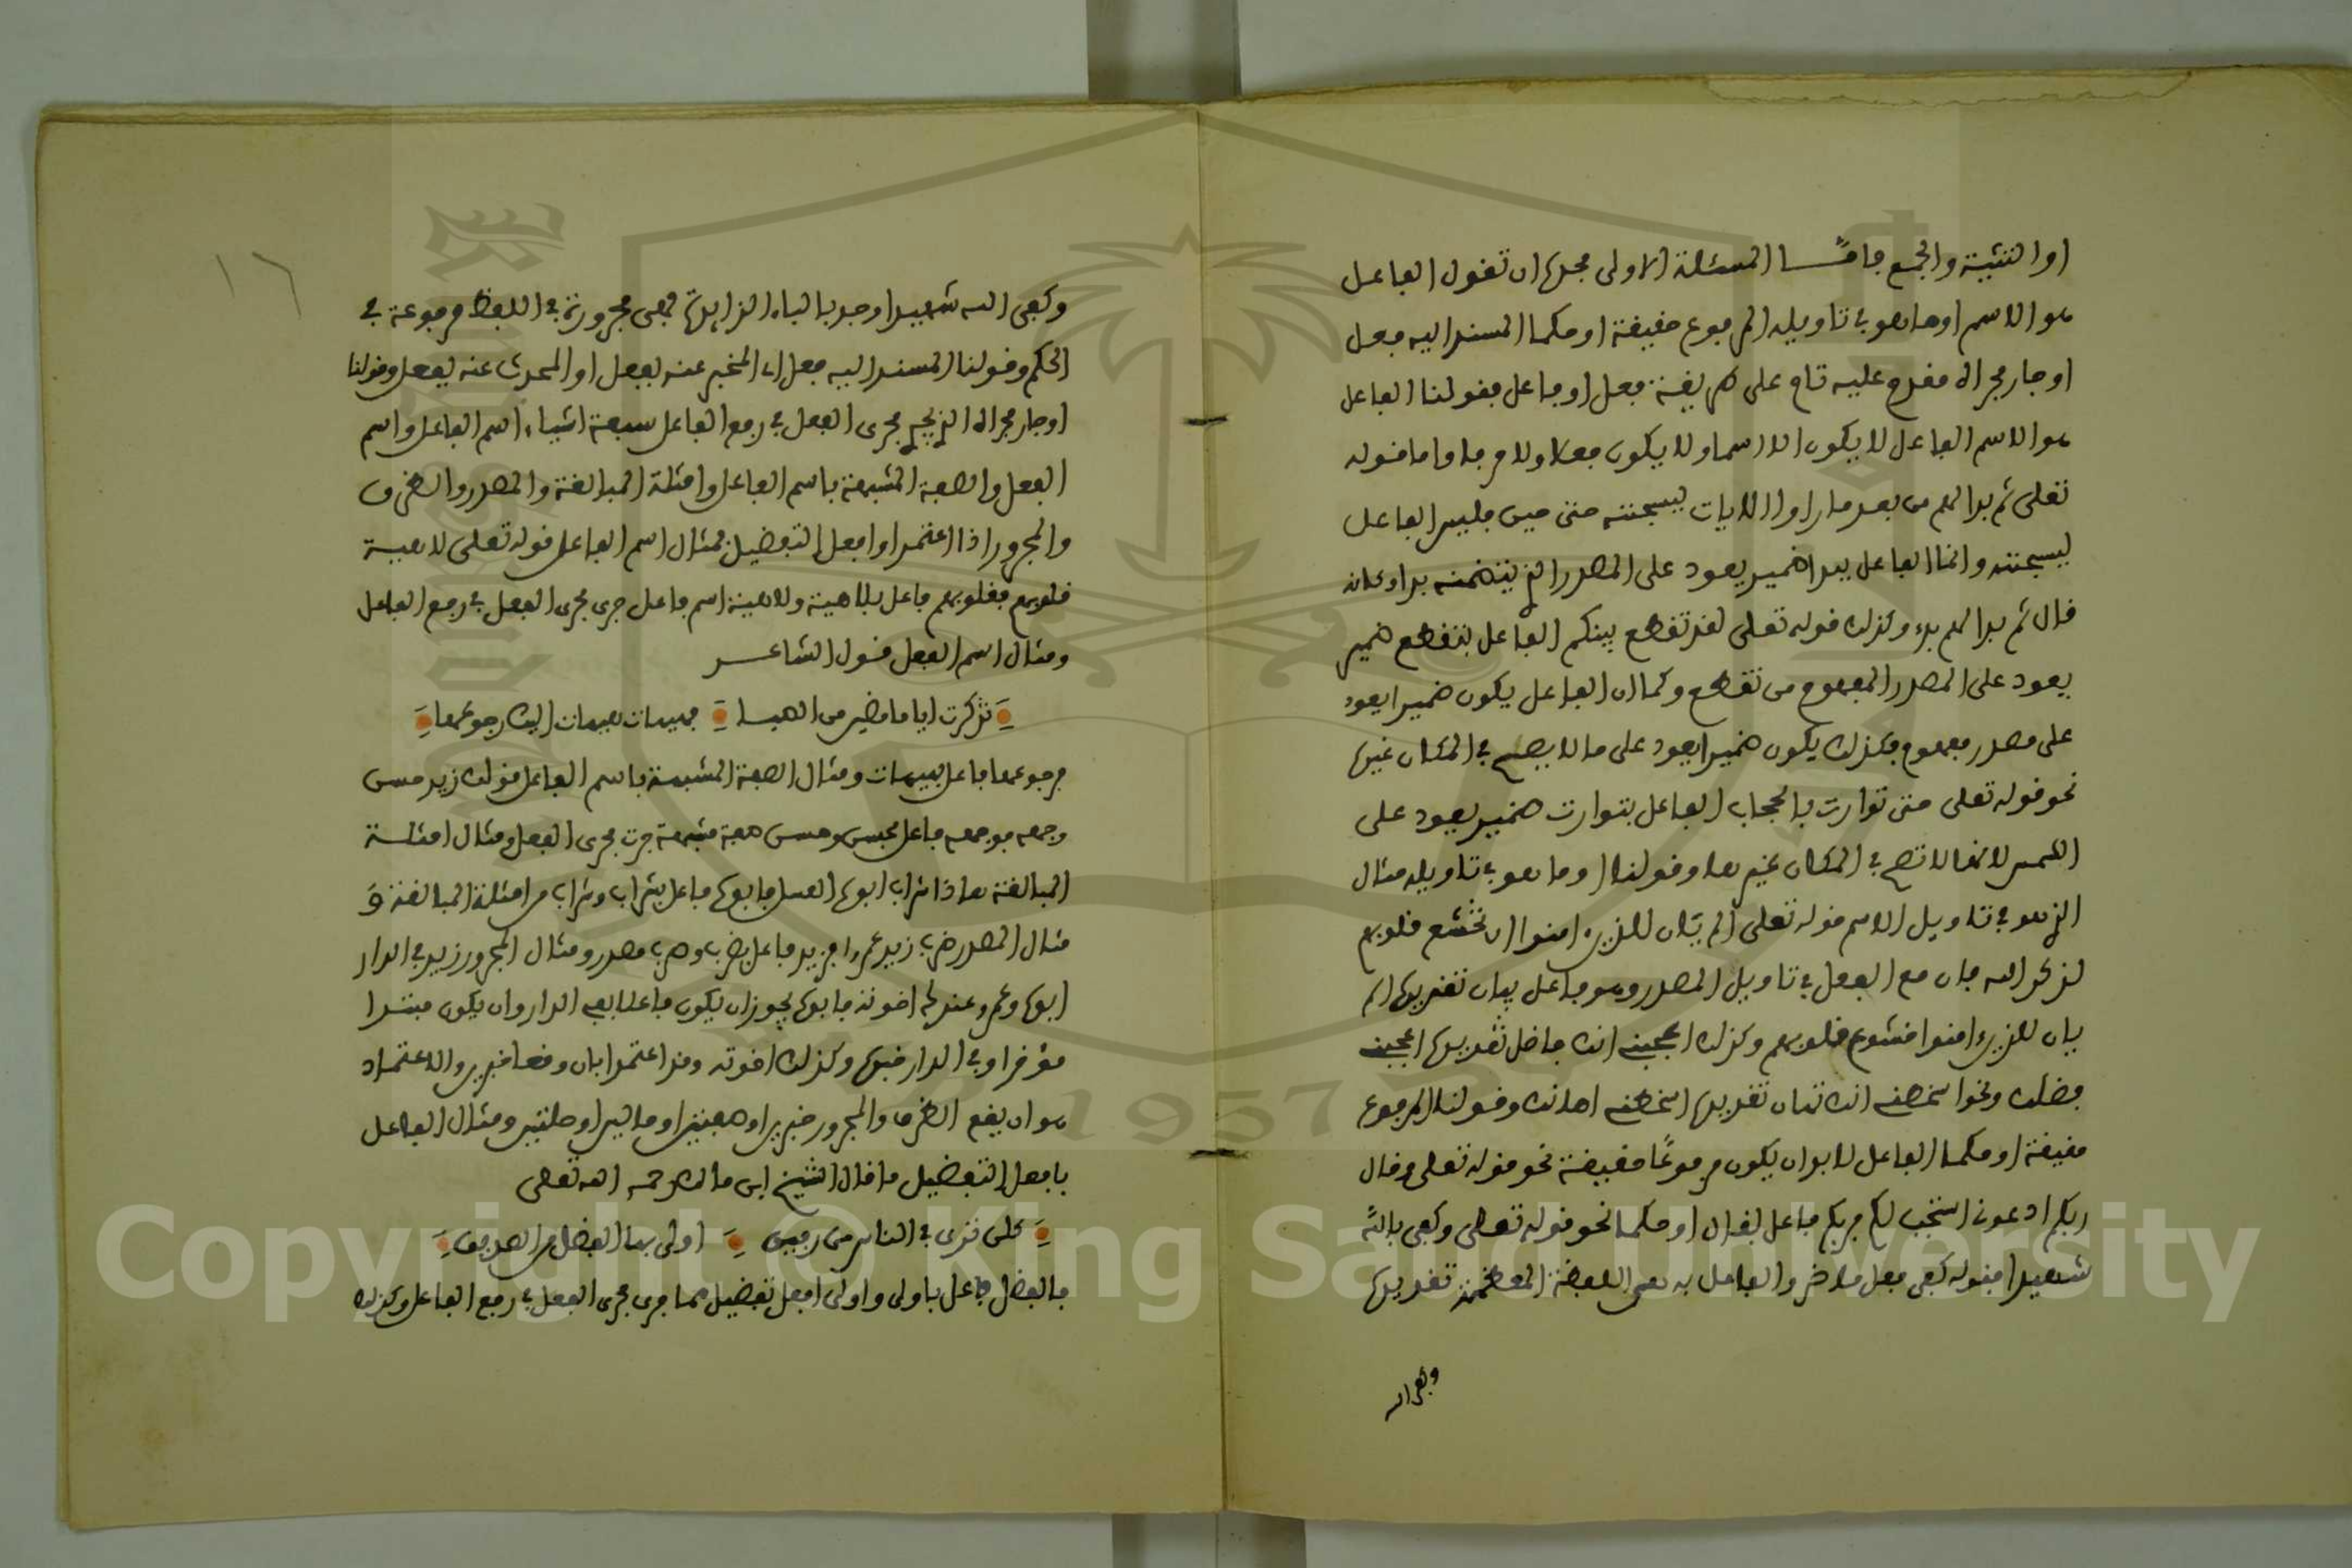 او التثنية والجمع فامّا المسئلة الاولى فحدها ان تقول الفاعل
هو الاسم او ما هو في تاويله المرفوع حقيقة او حكما المسند اليه فعل
او جار مجراه مقدم عليه تام على طريقة فعل او فاعل فقولنا الفاعل
هو الاسم الفاعل لا يكون الا اسما ولا يكون فعلا ولا حرفا واما قوله
تعلى ثم بدا لهم من بعد ما راوا الايات ليسجننه حتى حين فليس الفاعل
ليسجننه وانما الفاعل ببدا ضمير يعود على المصدر الذي يتضمنه بدا وكانه
قال ثم بدا لهم بدء وكذلك قوله تعلى لقد تقطع بينكم الفاعل بتقطع ضمير
يعود على المصدر المفهوم من تقطع وكما ان الفاعل يكون ضميرا يعود
على مصدر مفهوم فكذلك يكون ضميرا يعود على ما لا يصلح في المكان غيره
نحو قوله تعلى حتى توارت بالحجاب الفاعل بتوارت ضمير يعود على
الشمس لانها لا تصح في المكان غيرها وقولنا او ما هو في تاويله مثال
الذي هو في تاويل الاسم قوله تعلى الم يان للذين امنوا ان تخشع قلوبهم
لذكر الله فان مع الفعل في تاويل المصدر وهو فاعل بيان تقديره الم
يان للذين امنوا خشوع قلوبهم وكذلك اعجبني انك فاضل تقديره اعجبني
فضلك ونحو اسخطني انك تهان تقديره اسخطني اهانتك وقولنا المرفوع
حقيقة او حكما الفاعل لا بد ان يكون مرفوعًا حقيقة نحو قوله تعلى وقال
ربكم ادعوني استجب لكم فربكم فاعل لقال او حكما نحو قوله تعلى وكفى بالله
شهيدا فقوله كفى فعل ماض والفاعل به هي اللفظة المعظمة تقديره
وكفى الله
١٦
وكفى الله شهيدا وجر بالباء الزايدة فهي مجرورة في اللفظ مرفوعة في
الحكم وقولنا المسند اليه فعل اي المخبر عنه بفعل او المحدث عنه بفعل وقولنا
او جار مجراه الذي يجري مجرى الفعل في رفع الفاعل سبعة اشياء اسم الفاعل واسم
الفعل والصفة المشبهة باسم الفاعل وامثلة المبالغة والمصدر والظرف
والمجرور اذا اعتمدا وافعل التفضيل فمثال اسم الفاعل قوله تعلى لاهية
قلوبهم فقلوبهم فاعل بلاهية ولاهية اسم فاعل جرى مجرى الفعل في رفع الفاعل
ومثال اسم الفعل قول الشاعر
تذكرت اياما مضين من الصبا فهيهات هيهات اليك رجوعها
فرجوعها فاعل بهيهات ومثال الصفة المشبهة باسم الفاعل قولك زيد حسن
وجهه فوجهه فاعل بحسن وحسن صفة مشبهة جرت مجرى الفعل ومثال امثلة
المبالغة هاذا شراب ابوه العسل فابوه فاعل بشراب وشراب من امثلة المبالغة و
مثال المصدر ضرب زيد عمرا فزيد فاعل بضرب وضرب مصدر ومثال المجرور زيد في الدار
ابوه وعمرو عندك اخوته فابوه يجوز ان يكون فاعلا بفي الدار وان يكون مبتدا
موخرا وفي الدار خبره وكذلك اخوته وقد اعتمدا بان وقعا خبرين والاعتماد
هو ان يقع الظرف والمجرور خبرين او صفتين او حالين او صلتين ومثال الفاعل
بافعل التفضيل ما قال الشيخ ابن مالك رحمه الله تعلى
كلن ترى في الناس من رفيق اولى به الفضل من الصديق
فالفضل فاعل باولى واولى افعل تفضيل مما جرى مجرى الفعل في رفع الفاعل وكذلك
Copyright © King Saud University
1957